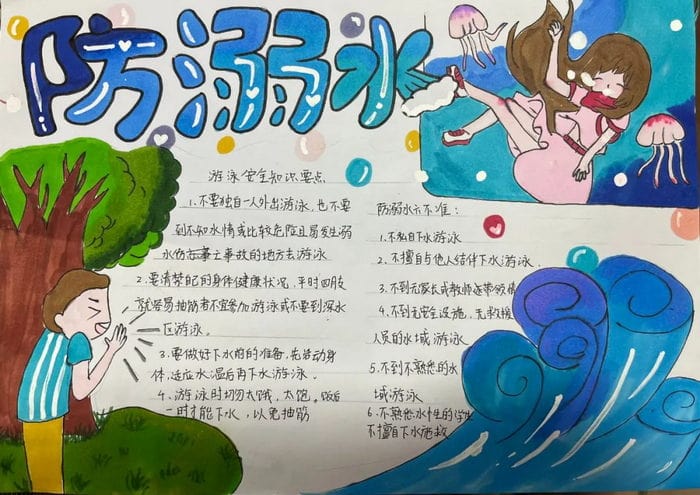 防溺水
游泳安全知识要点
1.不要独自一人外出游泳,也不要
到不知水情或比较危险且易发生溺
水伤亡事故的地方去游泳
2.要清楚自己的身体健康状况,平时四肢
就容易抽筋者不宜参加游泳或不要到深水
区游泳.
3.要做好下水前的准备,先活动身
体,适应水温后再下水游泳.
4、游泳时切勿太饿、太饱.饭后
一时才能下水,以免抽筋
防溺水六不准:
1.不私自下水游泳
2.不擅自与他人结伴下水游泳.
3.不到无家长或教师带领
4.不到无安全设施、无救援
人员的水域游泳
5.不到不熟悉的水
域游泳
6.不熟悉水性的学生
不擅自下水施救